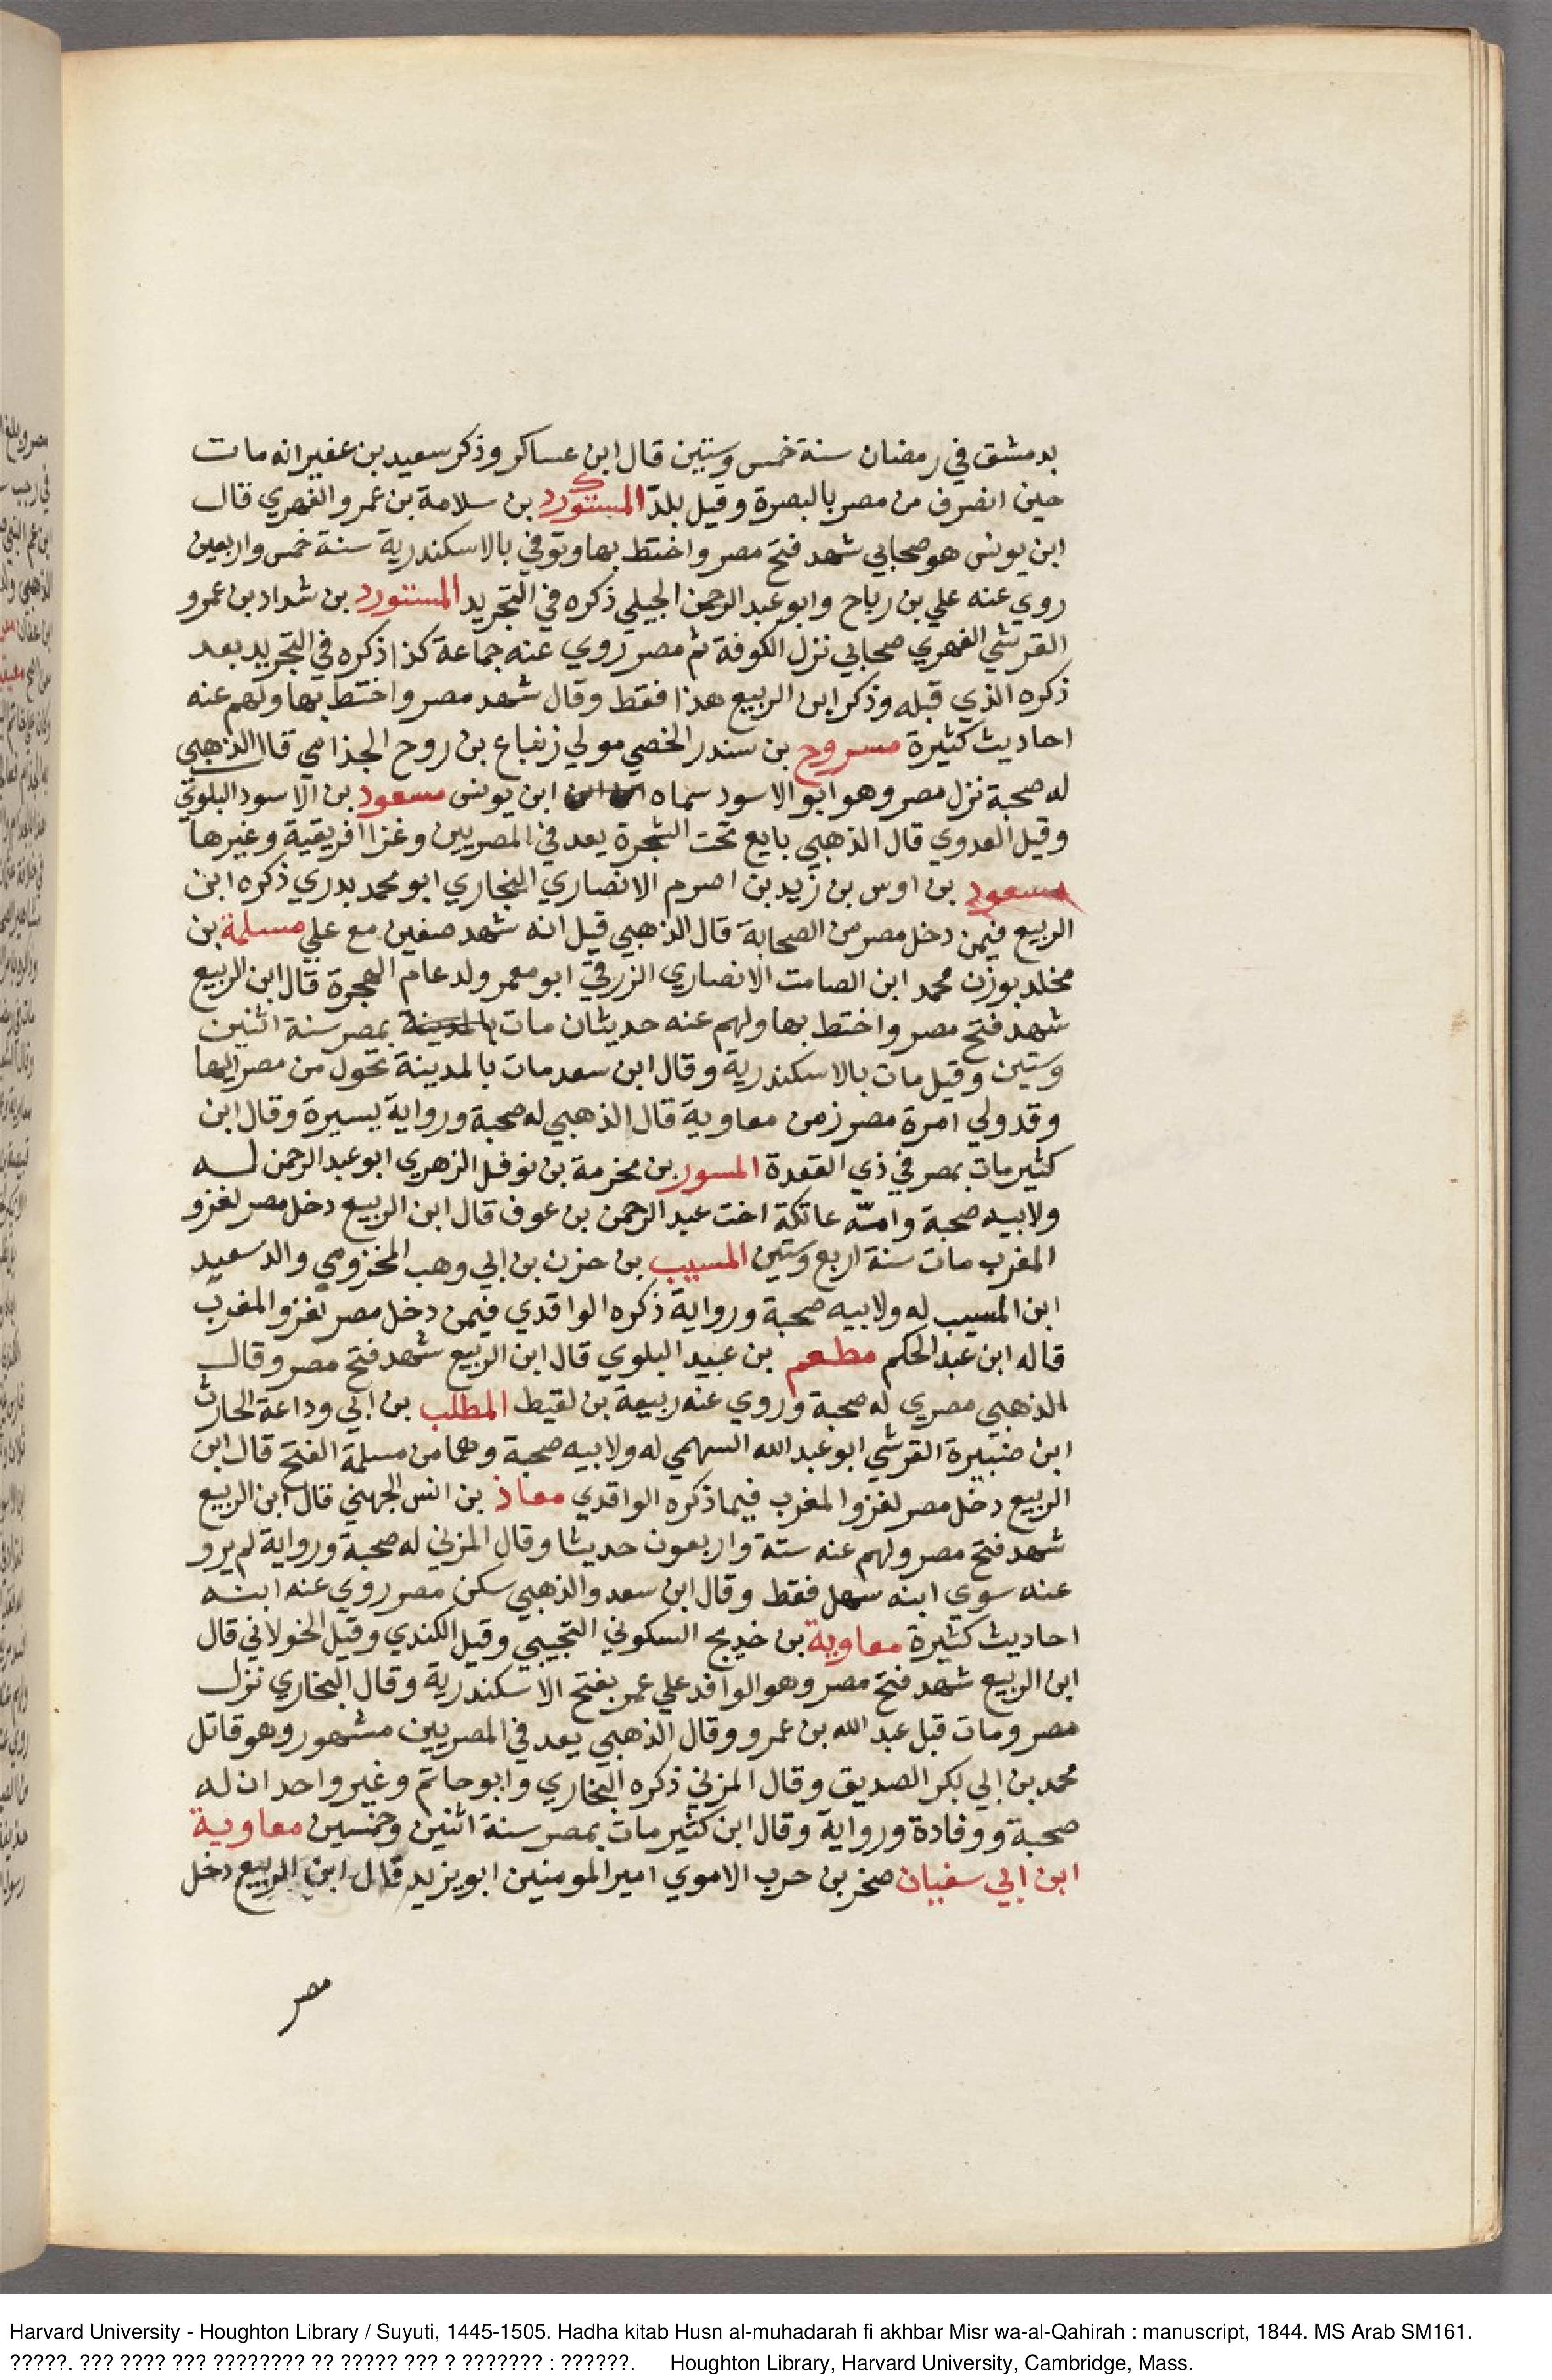 بدمشق في رمضان سنة خمس وستين قال ابن عساكر وذكر سعيد بن عفير انه مات
حين انصرف من مصر بالبصرة وقيل بلد المستورد بن سلامة بن عمرو الفهري قال
ابن يونس هو صحابي شهد فتح مصر واختط بها وتوفي بالاسكندرية سنة خمس واربعين
روي عنه علي بن رباح وابو عبد الرحمن الجيلي ذكره في التجريد المستورد بن شداد بن عمرو
القرشي الفهري صحابي نزل الكوفة ثم مصر روي عنه جماعة كذا ذكره في التجريد بعد
ذكره الذي قبله وذكر ابن الربيع هذا فقط وقال شهد مصر واختط بها ولهم عنه
احاديث كثيرة مسروح بن سندر الخصي مولي زنباع بن روح الجذامي قال الذهبي
له صحبة نزل مصر وهو ابو الاسود سماه ابن يونس مسعود بن الاسود البلوي
وقيل العدوي قال الذهبي بايع تحت الشجرة يعد في المصريين وغزا افريقية وغيرها
مسعود بن اوس بن زيد بن اصرم الانصاري النجاري ابو محمد بدري ذكره ابن
الربيع فيمن دخل مصر من الصحابة قال الذهبي قيل انه شهد صفين مع علي مسلمة بن
مخلد بوزن محمد ابن الصامت الانصاري الزرقي ابو معمر ولد عام الهجرة قال ابن الربيع
شهد فتح مصر واختط بها ولهم عنه حديثان مات بالمدينة بمصر سنة اثنين
وستين وقيل مات بالاسكندرية وقال ابن سعد مات بالمدينة تحول من مصر اليها
وقد ولي امرة مصر زمن معاوية قال الذهبي له صحبة ورواية يسيرة وقال ابن
كثير مات بمصر في ذي القعدة المسور بن مخرمة بن نوفل الزهري ابو عبد الرحمن له
ولابيه صحبة وامه عاتكة اخت عبد الرحمن بن عوف قال ابن الربيع دخل مصر لغزو
المغرب مات سنة اربع وستين المسيب بن حزن بن ابي وهب المخزومي والد سعيد
ابن المسيب له ولابيه صحبة ورواية ذكره الواقدي فيمن دخل مصر لغزو المغرب
قاله ابن عبد الحكم مطعم بن عبيد البلوي قال ابن الربيع شهد فتح مصر وقال
الذهبي مصري له صحبة وروي عنه ربيعة بن لقيط المطلب بن ابي وداعة الحارث
ابن ضبيرة القرشي ابو عبد الله السهمي له ولابيه صحبة وهما من مسلمة الفتح قال ابن
الربيع دخل مصر لغزو المغرب فيما ذكره الواقدي معاذ بن انس الجهني قال ابن الربيع
شهد فتح مصر ولهم عنه ستة واربعون حديثا وقال المزني له صحبة ورواية لم يرو
عنه سوي ابنه سهل فقط وقال ابن سعد والذهبي سكن مصر روي عنه ابنه
احاديث كثيرة معاوية بن خديج السكوني التجيبي وقيل الكندي وقيل الخولاني قال
ابن الربيع شهد فتح مصر وهو الوافد علي عمر بفتح الاسكندرية وقال البخاري نزل
مصر ومات قبل عبد الله بن عمرو وقال الذهبي يعد في المصريين مشهور وهو قاتل
محمد بن ابي بكر الصديق وقال المزني ذكره البخاري وابو حاتم وغير واحد ان له
صحبة ووفادة ورواية وقال ابن كثير مات بمصر سنة اثنين وخمسين معاوية
ابن ابي سفيان صخر بن حرب الاموي امير المومنين ابو يزيد قال ابن الربيع دخل
مصر
Harvard University - Houghton Library / Suyuti, 1445-1505. Hadha kitab Husn al-muhadarah fi akhbar Misr wa-al-Qahirah : manuscript, 1844. MS Arab SM161.
?????. ??? ???? ??? ???????? ?? ????? ??? ? ??????? : ??????. Houghton Library, Harvard University, Cambridge, Mass.